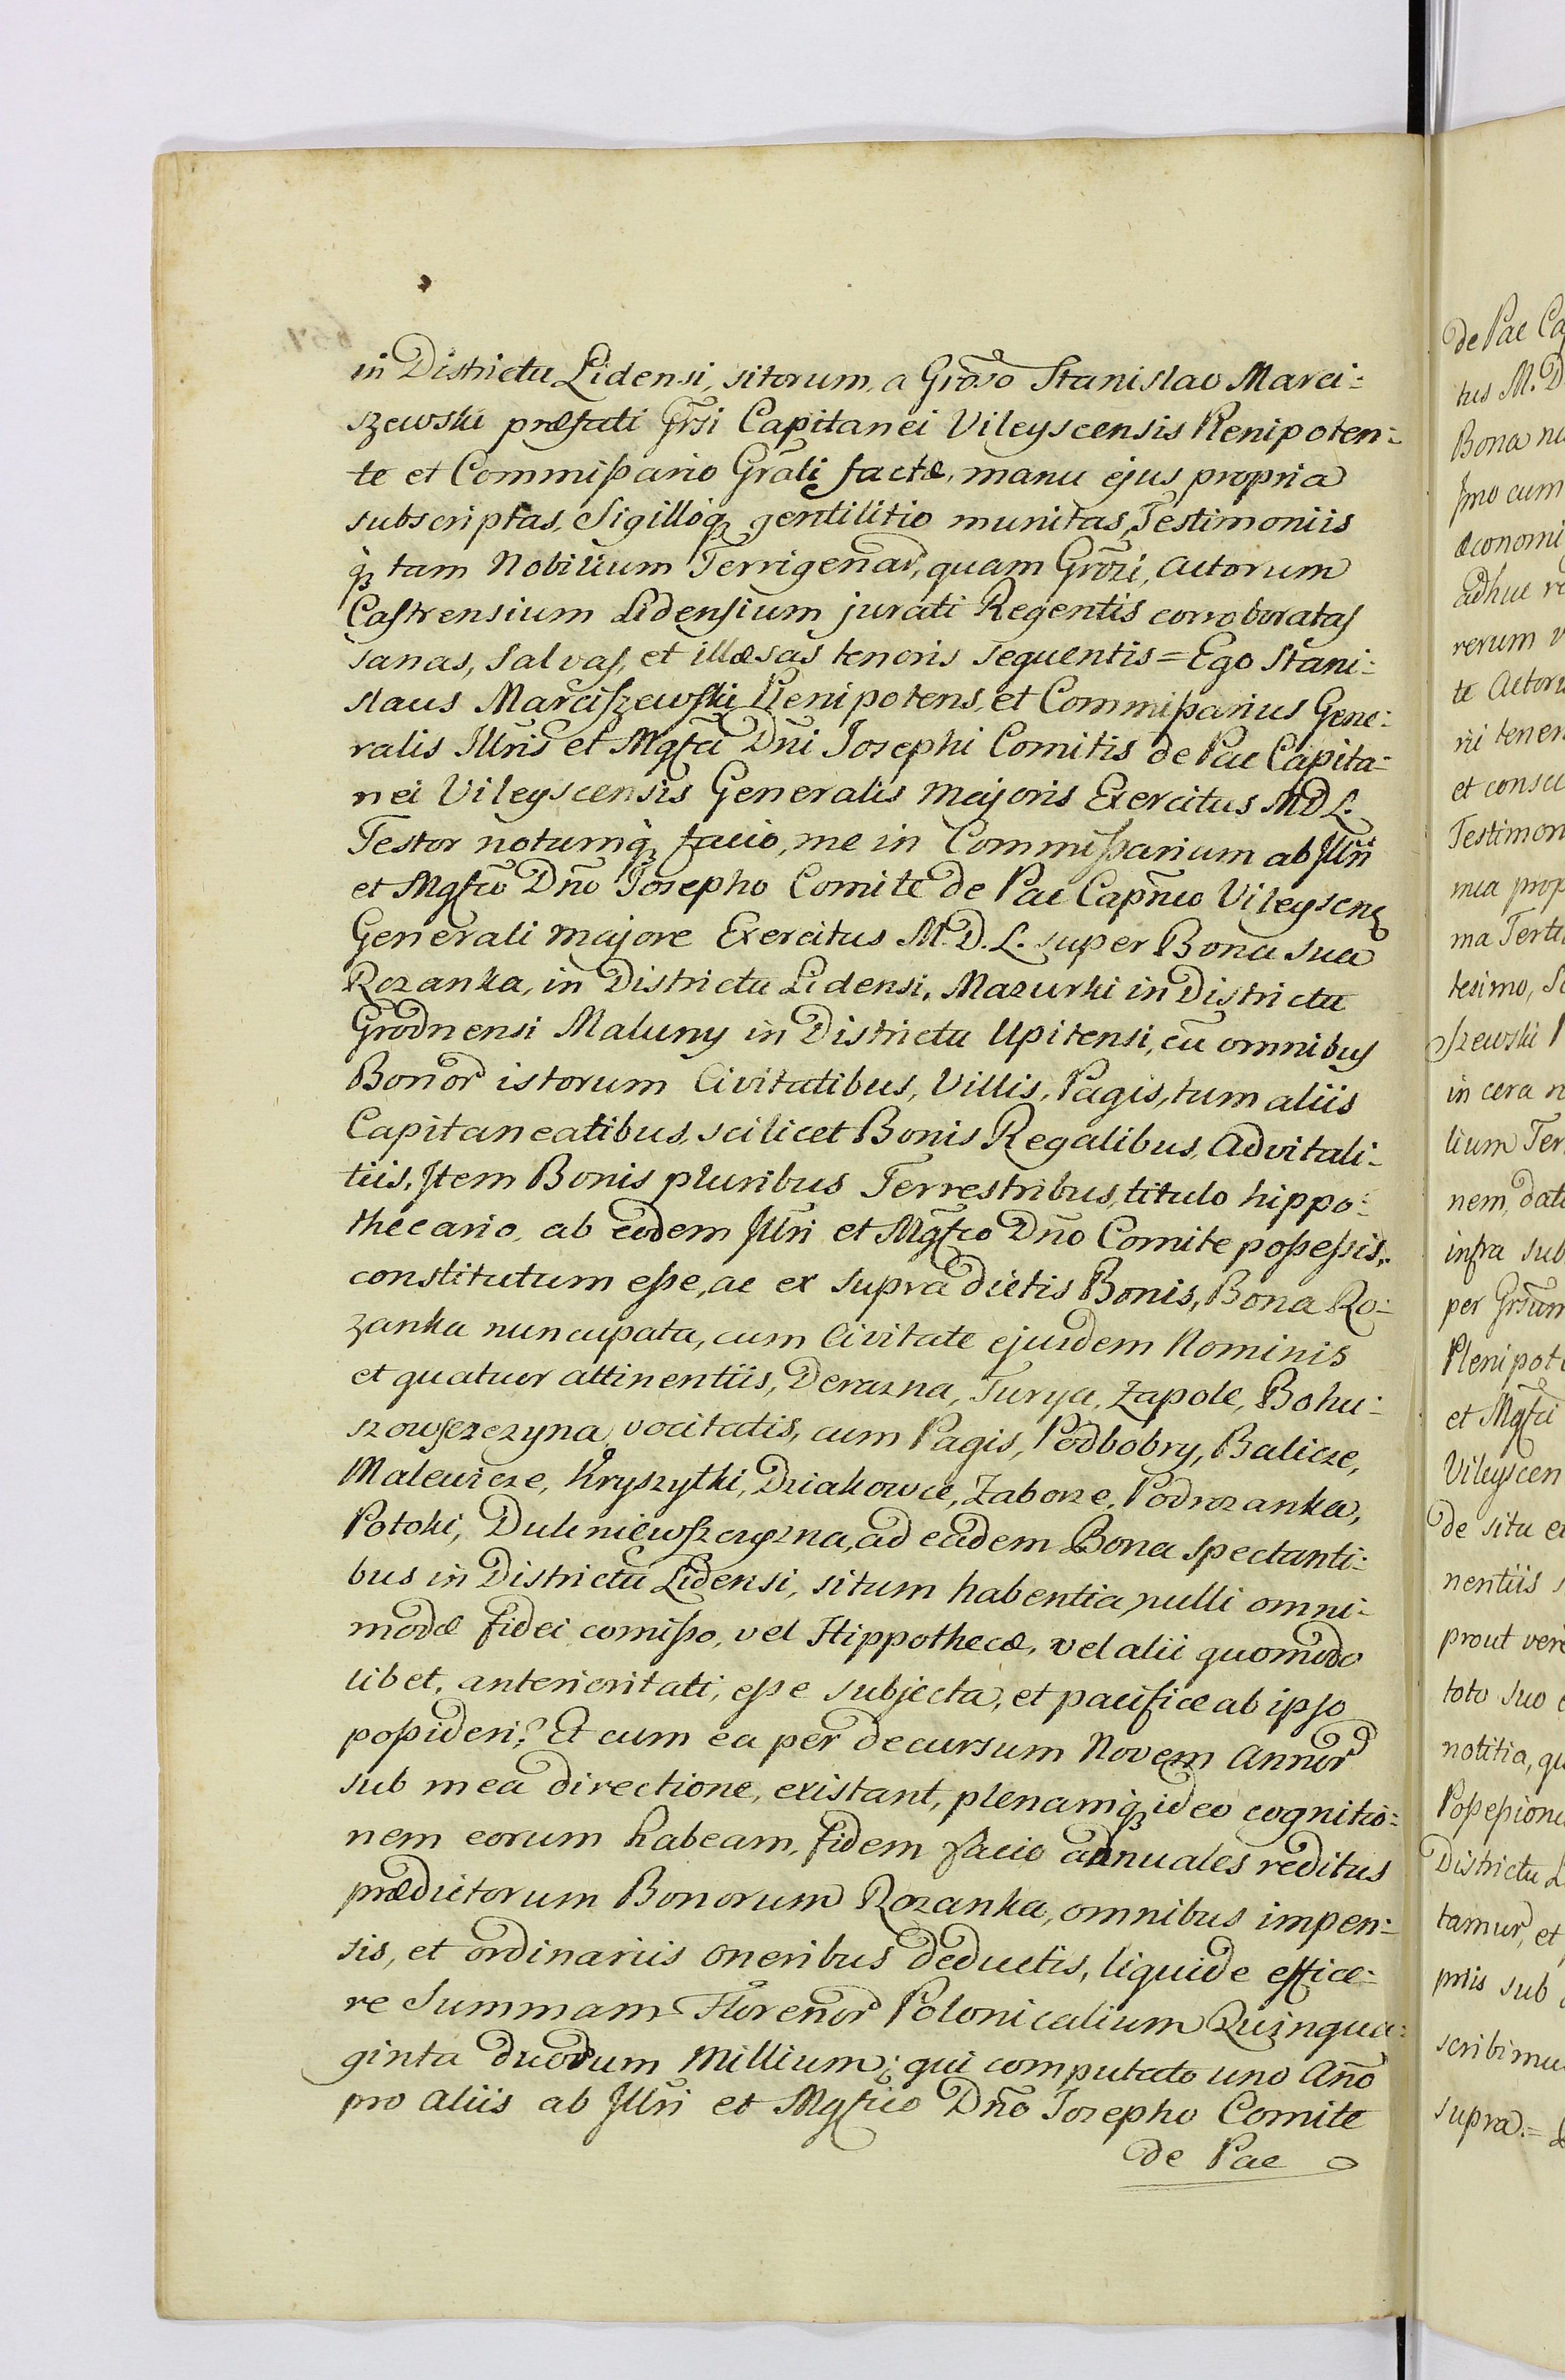 in Districtu Lidensi, sitorum, a Grōso Stanislao Marci:
szewski præfati Grsi Capitanei Vileyscensis Plenipoten:
te et Commißario Grāli factæ, manu ejus propria
subscriptas, Sigilloq, gentilitio munitas, Testimoniis
q, tam Nobilium Terrigenar, quam Grōzi, Actorum
Castrensium Lidensium jurati Regentis corroboratas
sanas, salvas, et illæsas tenoris sequentis = Ego Stani:
slaus Marciszewski Plenipotens, et Commißarius Gene:
ralis Illris et Mgfci Dni Josephi Comitis de Pac Capita:
nei Vileyscensis Generalis Majoris Exercitus M.D.L.
Testor notumq, facio, me in Commißarium ab Illri
et Mgfco Dno Josepho Comite de Pac Capneo Vileyscen
Generali majore Exercitus M.D.L. super Bona sua
Rozanka, in Districtu Lidensi, Mazurki in Districtu
Grodnensi Maluny in Districtu Upitensi, cū omnibus
Bonor istorum Civitatibus, Villis, Pagis, tum aliis
Capitaneatibus, scilicet Bonis Regalibus, Advitali:
tiis, Item Bonis pluribus Terrestribus, titulo hippo:
thecario, ab eodem Illri et Mgfco Dno Comite poßeßis,
constitutum eße, ac ex supra dictis Bonis, Bona Ro:
zanka nuncupata, cum Civitate ejusdem Nominis
et quatuor attinentiis, Derazna, Turya, Zapole, Bohu:
szowszczyzna, vocitatis, cum Pagis, Podbobry, Balicze,
Malewicze, Kryszytki, Dziakowce, Zaborze, Podrozanka,
Potoki, Duleniewszczyzna, ad eadem Bona spectanti:
bus in Districtu Lidensi, situm habentia, nulli omni:
modæ fidei comißo, vel Hippothecæ, vel alii quomodo
libet, anterioritati, eße subjecta, et pacifice ab ipso
poßideri? Et cum ea per decursum Novem Annor
sub mea directione, existant, plenamq, ideo cognitio:
nem eorum habeam, fidem facio annuales reditus
prædictorum Bonorum Rozanka, omnibus impen:
sis, et ordinariis oneribus deductis, liquide effice:
re Summam Florenor Polonicalium Quinqua:
ginta duorum Millium; qui computato uno Año
pro aliis ab Illri et Mgfico Dno Josepho Comite
de Pac
de Pac Ca
tus M.D
Bona nu
Imo cum
œconomi
adhuc re
rerum v
te Actoru
ri tenen
et consci
Testimon
mea prop
ma Terti
tesimo, S
szewski P
in cera
lium Ter
nem, dat
infra sub
per Grsum
Plenipot
et Mgfci
Vileyscen
de situ e
nentiis
prout vere
toto suo
notitia, qu
Poßeßione
Districtu L
tamur, et
priis sub
scribimu
supra =